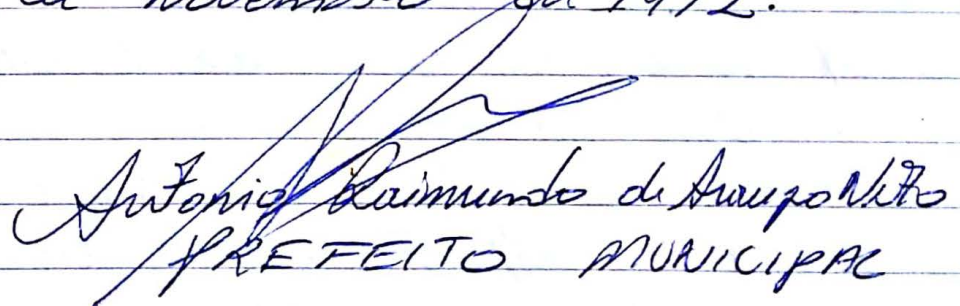 de novembro de 1992.
Antonio Raimundo de Araujo Neto
PREFEITO MUNICIPAL